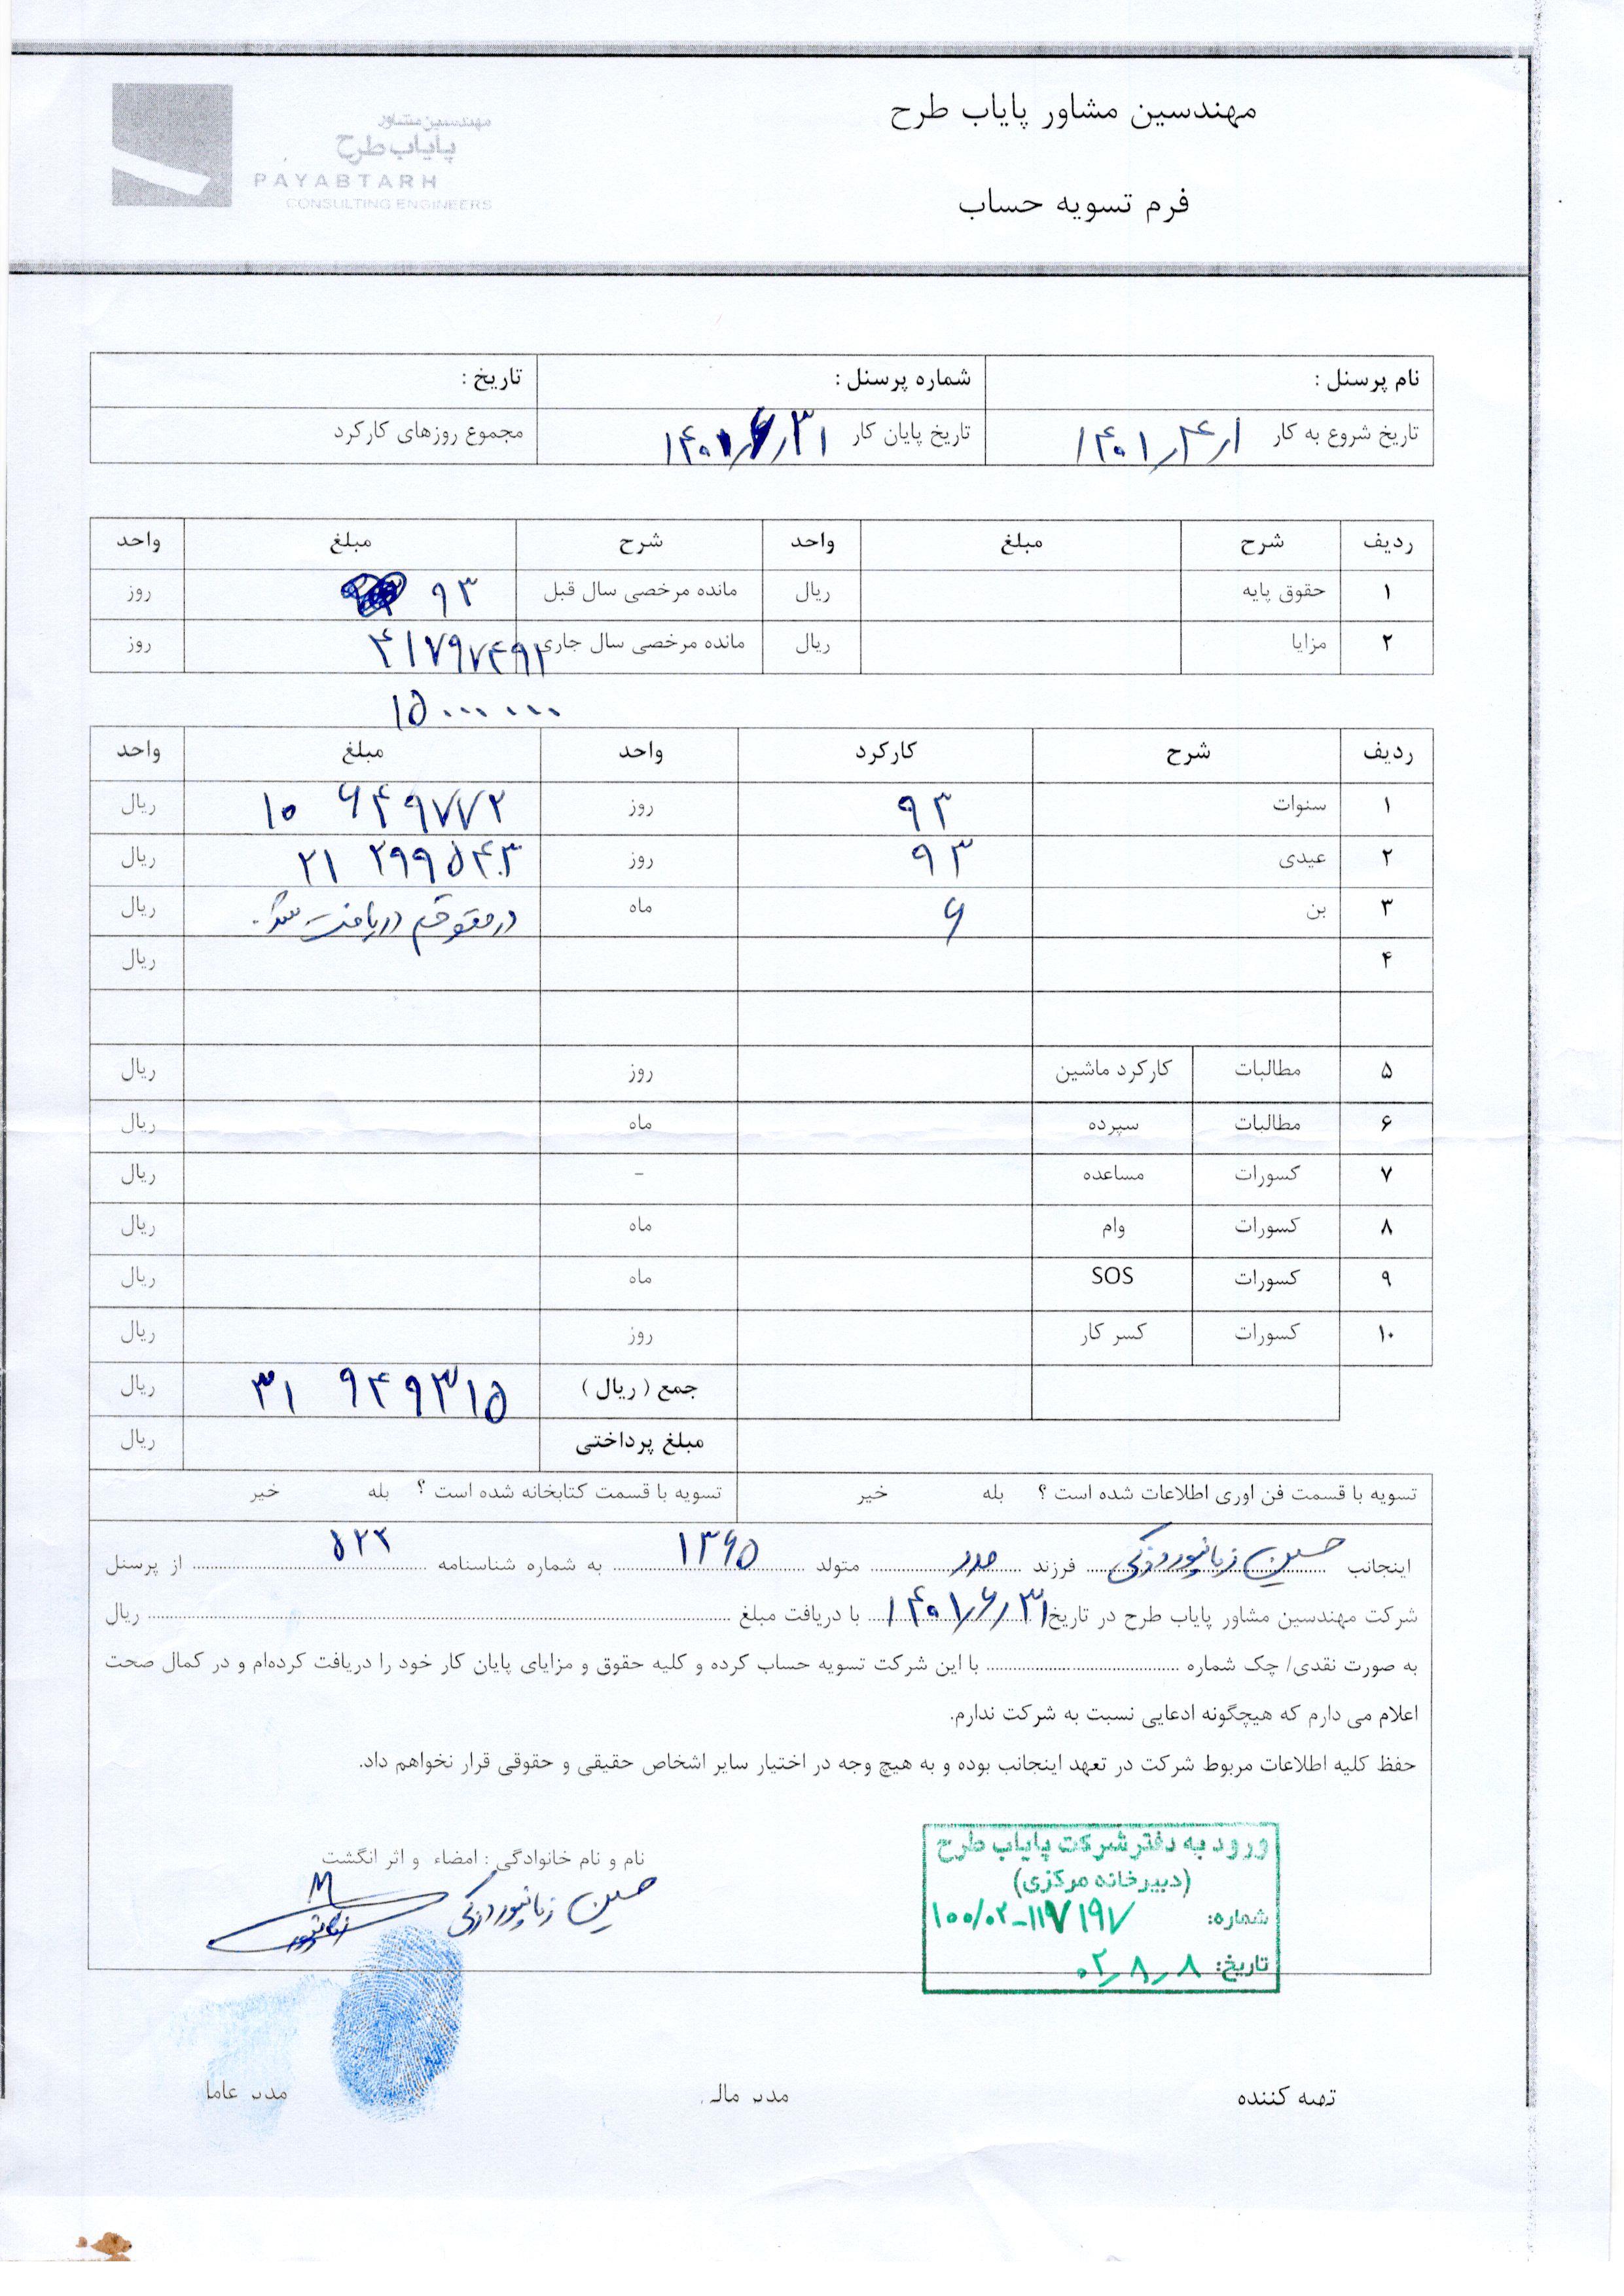 مهندسین مشاور پایاب طرح
فرم تسویه حساب
مهندسین مشاور
پایاب طرح
PAYABTARH
CONSULTING ENGINEERS
نام پرسنل : شماره پرسنل : تاریخ :
تاریخ شروع به کار ۱۴۰۱/۴/۱ تاریخ پایان کار ۱۴۰۱/۶/۳۱ مجموع روزهای کارکرد
ردیف شرح مبلغ واحد شرح مبلغ واحد
۱ حقوق پایه ریال مانده مرخصی سال قبل ۹۳ روز
۲ مزایا ریال مانده مرخصی سال جاری ۴۱۷۹۷۴۹۲ روز
۱۵۰۰۰۰۰۰
ردیف شرح کارکرد واحد مبلغ واحد
۱ سنوات ۹۳ روز ۱۰ ۶۴۹۷۷۲ ریال
۲ عیدی ۹۳ روز ۲۱ ۲۹۹۵۴۳ ریال
۳ بن ۶ ماه در حقوق دریافت شد. ریال
۴ ریال
۵ مطالبات کارکرد ماشین روز ریال
۶ مطالبات سپرده ماه ریال
۷ کسورات مساعده - ریال
۸ کسورات وام ماه ریال
۹ کسورات SOS ماه ریال
۱۰ کسورات کسر کار روز ریال
جمع ( ریال ) ۳۱ ۹۴۹۳۱۵ ریال
مبلغ پرداختی ریال
تسویه با قسمت فن اوری اطلاعات شده است ؟ بله خیر تسویه با قسمت کتابخانه شده است ؟ بله خیر
اینجانب حسین فرزند متولد ۱۳۶۵ به شماره شناسنامه ۵۲۲ از پرسنل
شرکت مهندسین مشاور پایاب طرح در تاریخ ۱۴۰۱/۶/۳۱ با دریافت مبلغ ریال
به صورت نقدی/ چک شماره با این شرکت تسویه حساب کرده و کلیه حقوق و مزایای پایان کار خود را دریافت کرده‌ام و در کمال صحت
اعلام می دارم که هیچگونه ادعایی نسبت به شرکت ندارم.
حفظ کلیه اطلاعات مربوط شرکت در تعهد اینجانب بوده و به هیچ وجه در اختیار سایر اشخاص حقیقی و حقوقی قرار نخواهم داد.
نام و نام خانوادگی : امضاء و اثر انگشت
حسین
ورود به دفتر شرکت پایاب طرح
(دبیرخانه مرکزی)
شماره: ۱۰۰/۰۲-۱۱۷۱۹۷
تاریخ: ۰۲/۸/۸
تهیه کننده مدیر مالی مدیر عامل